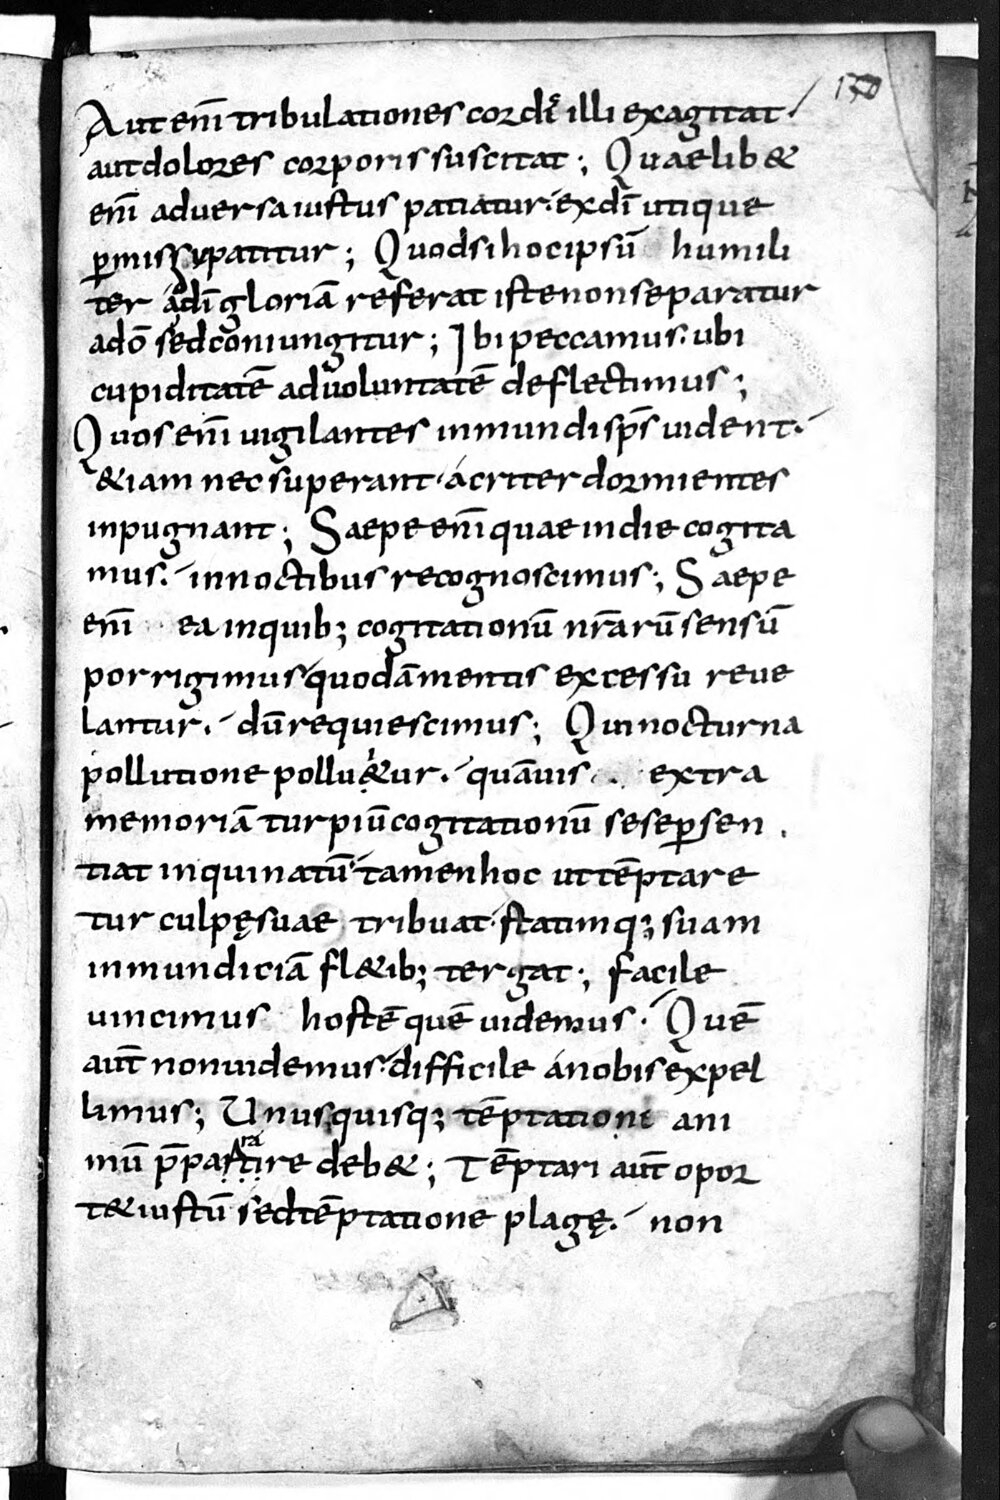 170
Aut enī tribulationes cordi illi exagitat.
aut dolores corporis suscitat; Quaelib&
enī adversa iustus patiatur. ex dī utique
ꝑmissu patitur; Quod si hoc ipsū humili
ter ad dī gloriā referat iste non separatur
a dō sed coniungitur; Ibi peccamus. ubi
cupiditatē ad voluntatē deflectimus;
Quos enī vigilantes inmundi sp̄s vident.
&iam nec superant acriter dormientes
inpugnant; Saepe enī quae in die cogita
mus. in noctibus recognoscimus; Saepe
enī ea in quib; cogitationū nr̄arū sensū
porrigimus quodā mentis excessu reve
lantur. dū requiescimus; Qui nocturna
pollutione pollu&ur. quāvis extra
memoriā turpiū cogitationū sese ꝑsen
tiat inquinatū tamen hoc ut tēptare
tur culpę suae tribuat. statimq; suam
inmundiciā fl&ib; tergat; facile
vincimus hostē quē videmus. Quē
aut̄ non videmus. difficile a nobis expel
limus; Unusquisq; tēptationi ani
mū p̄partire deb&; Tēptari aut̄ opor
t& iustū sed tēptatione plagę. non